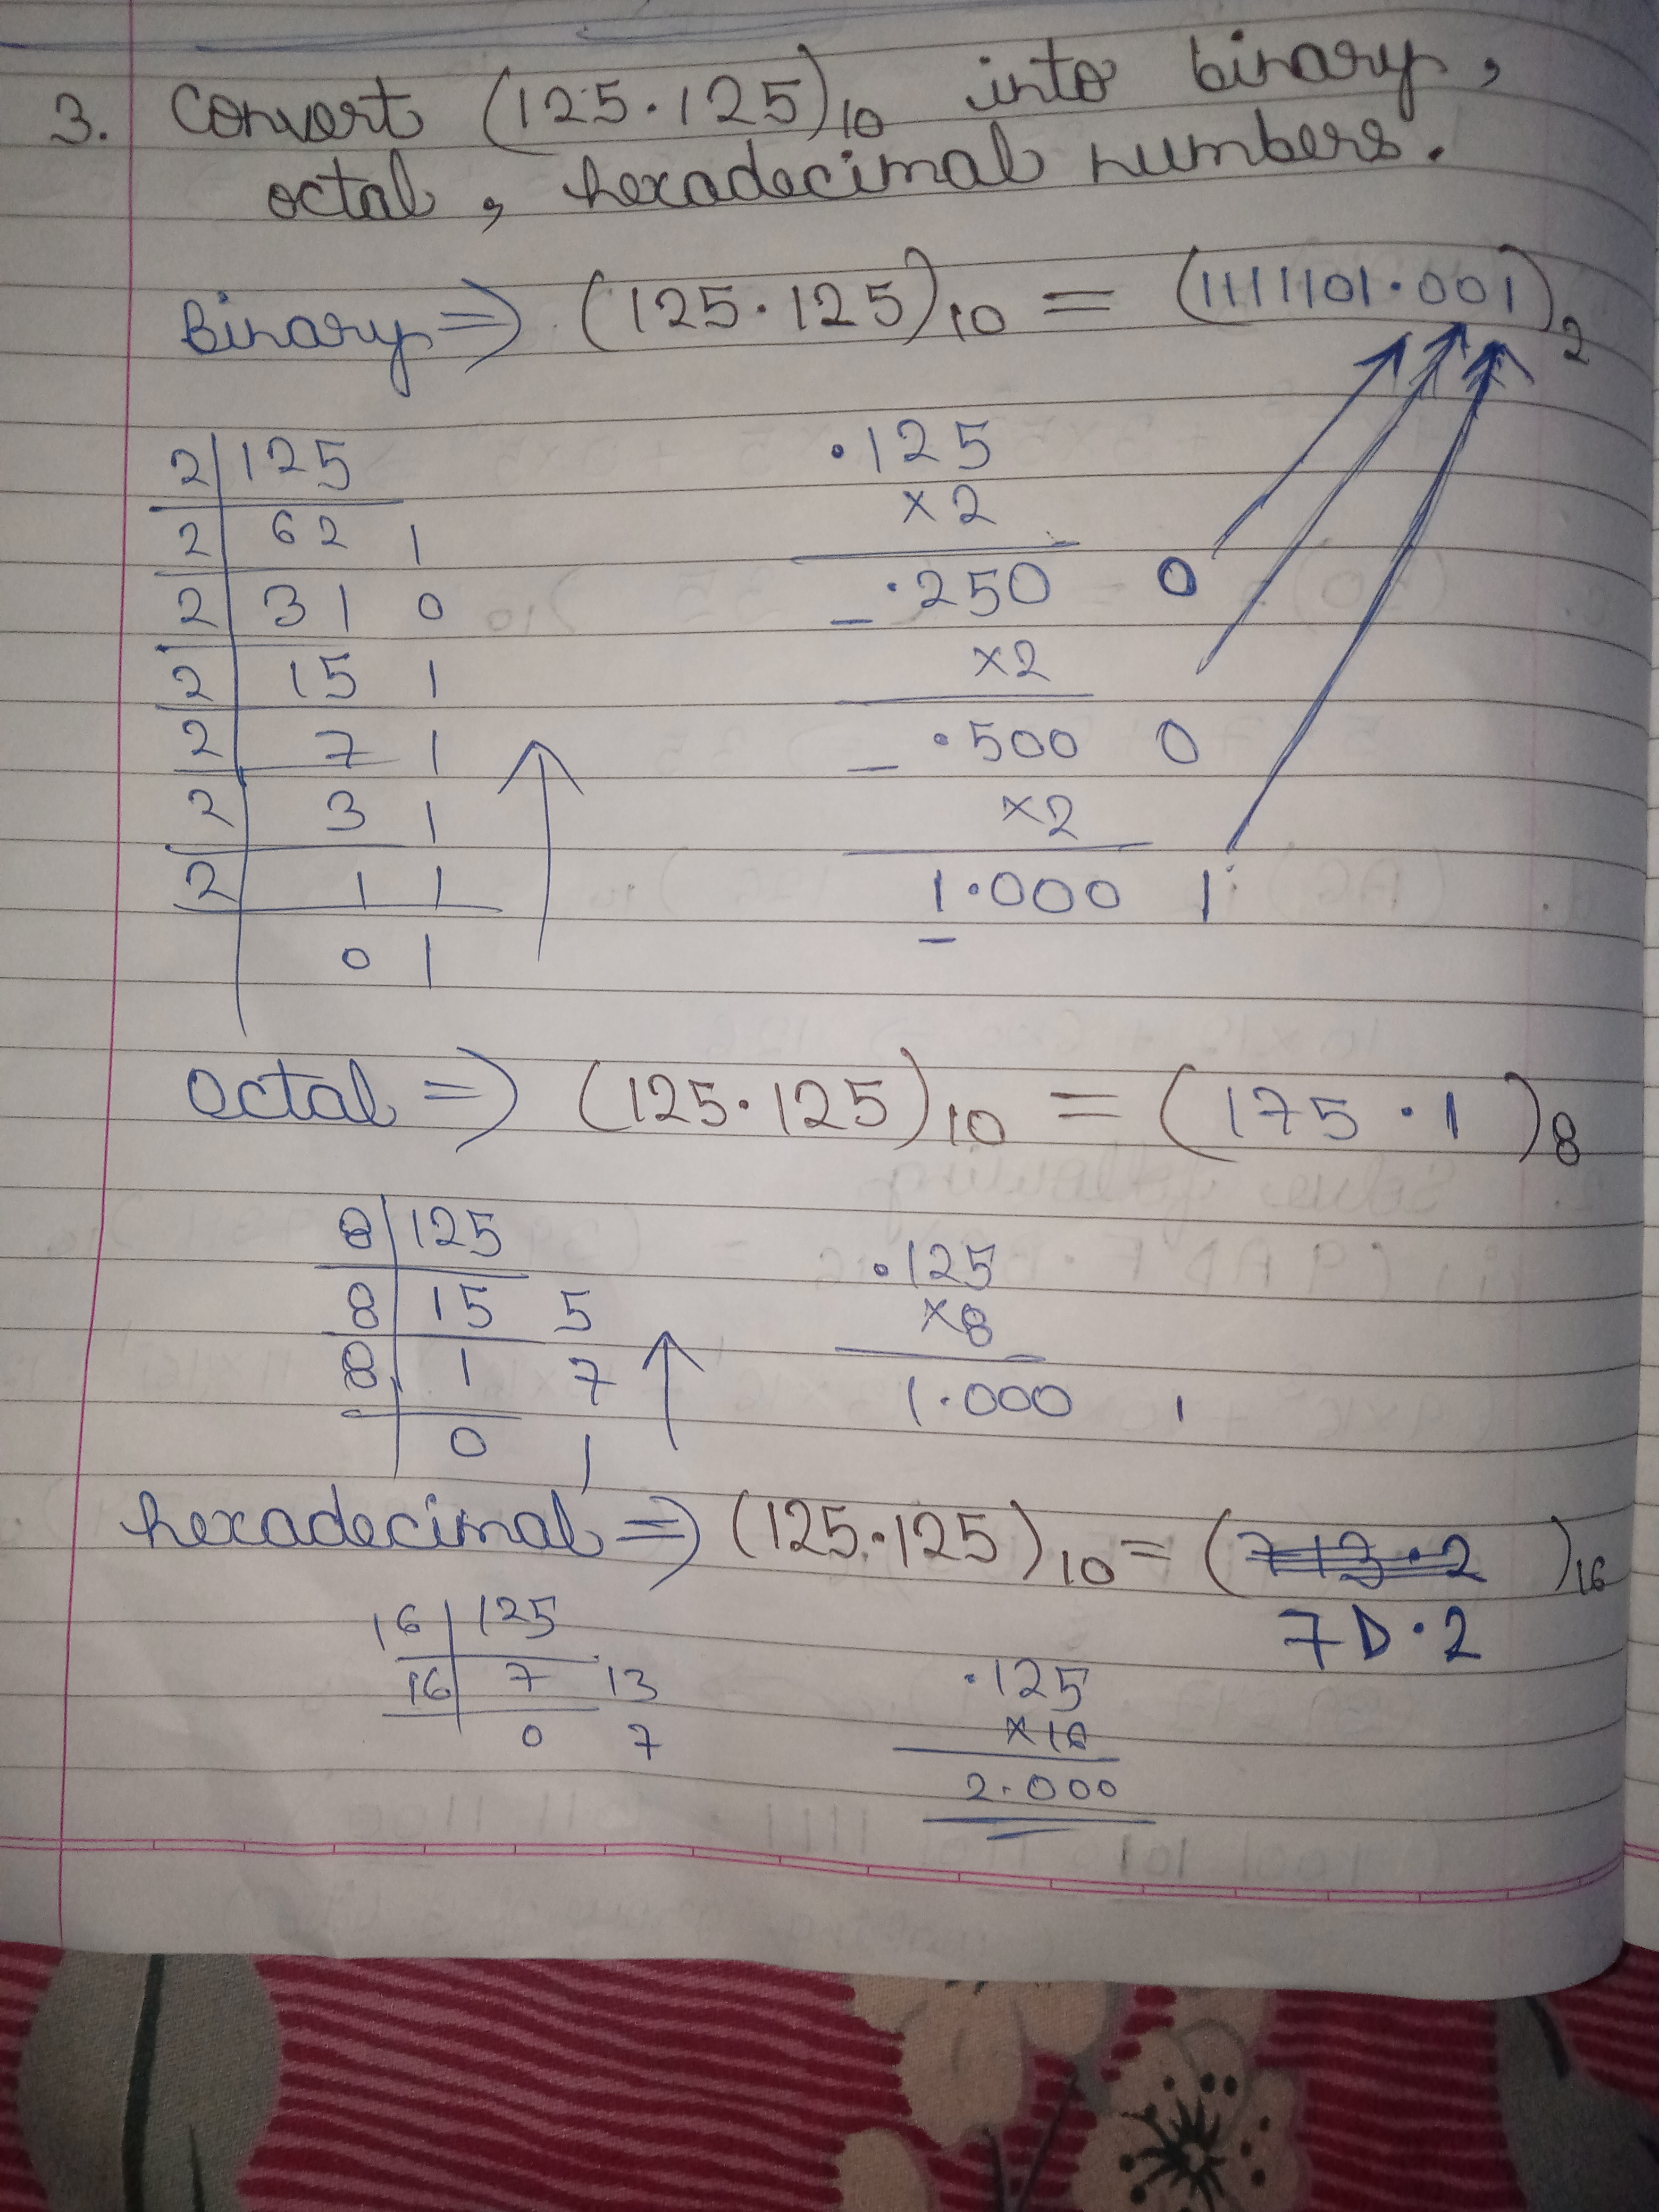 3. Convert (125.125)10 into binary,
octal, hexadecimal numbers.
Binary => (125.125)10 = (1111101.001)2
2 125
2 62 1
2 31 0
2 15 1
2 7 1
2 3 1
2 1 1
0 1
.125
×2
.250 0
×2
.500 0
×2
1.000 1
Octal => (125.125)10 = (175.1)8
8 125
8 15 5
8 1 7
0 1
.125
×8
1.000 1
hexadecimal => (125.125)10 = (713.2)16
7D.2
16 125
16 7 13
0 7
.125
×16
2.000